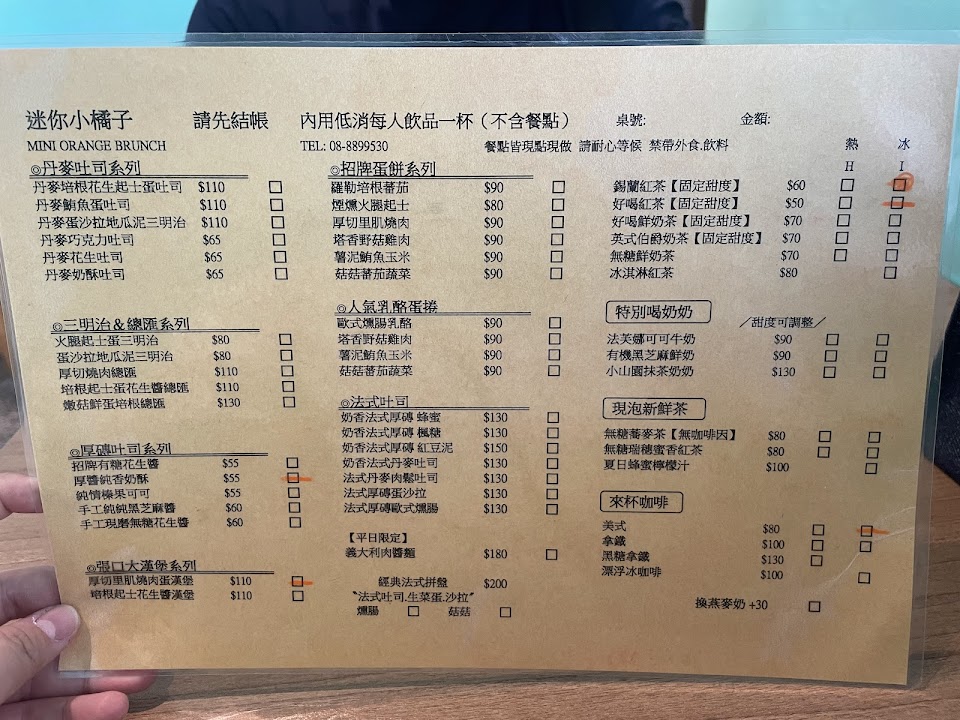 迷你小橘子 請先結帳 內用低消每人飲品一杯（不含餐點） 桌號: 金額:
MINI ORANGE BRUNCH TEL: 08-8899530 餐點皆現點現做 請耐心等候 禁帶外食.飲料
◎丹麥吐司系列
丹麥培根花生起士蛋吐司 $110 □
丹麥鮪魚蛋吐司 $110 □
丹麥蛋沙拉地瓜泥三明治 $110 □
丹麥巧克力吐司 $65 □
丹麥花生吐司 $65 □
丹麥奶酥吐司 $65 □
◎三明治&總匯系列
火腿起士蛋三明治 $80 □
蛋沙拉地瓜泥三明治 $80 □
厚切燒肉總匯 $110 □
培根起士蛋花生醬總匯 $110 □
嫩菇鮮蛋培根總匯 $130 □
◎厚磚吐司系列
招牌有糖花生醬 $55 □
厚醬純香奶酥 $55 □
純情榛果可可 $55 □
手工純純黑芝麻醬 $60 □
手工現磨無糖花生醬 $60 □
◎張口大漢堡系列
厚切里肌燒肉蛋漢堡 $110 □
培根起士花生醬漢堡 $110 □
◎招牌蛋餅系列
羅勒培根蕃茄 $90 □
煙燻火腿起士 $80 □
厚切里肌燒肉 $90 □
塔香野菇雞肉 $90 □
薯泥鮪魚玉米 $90 □
菇菇蕃茄蔬菜 $90 □
◎人氣乳酪蛋捲
歐式燻腸乳酪 $90 □
塔香野菇雞肉 $90 □
薯泥鮪魚玉米 $90 □
菇菇蕃茄蔬菜 $90 □
◎法式吐司
奶香法式厚磚 蜂蜜 $130 □
奶香法式厚磚 楓糖 $130 □
奶香法式厚磚 紅豆泥 $150 □
奶香法式丹麥吐司 $130 □
法式丹麥肉鬆吐司 $130 □
法式厚磚蛋沙拉 $130 □
法式厚磚歐式燻腸 $130 □
【平日限定】
義大利肉醬麵 $180 □
經典法式拼盤 $200
〝法式吐司.生菜蛋.沙拉〞
燻腸 □ 菇菇 □
熱 冰
H I
錫蘭紅茶【固定甜度】 $60 □ □
好喝紅茶【固定甜度】 $50 □ □
好喝鮮奶茶【固定甜度】 $70 □ □
英式伯爵奶茶【固定甜度】 $70 □ □
無糖鮮奶茶 $70 □ □
冰淇淋紅茶 $80 □
特別喝奶奶 ／甜度可調整／
法芙娜可可牛奶 $90 □ □
有機黑芝麻鮮奶 $90 □ □
小山園抹茶奶奶 $130 □ □
現泡新鮮茶
無糖蕎麥茶【無咖啡因】 $80 □ □
無糖瑞穗蜜香紅茶 $80 □ □
夏日蜂蜜檸檬汁 $100 □
來杯咖啡
美式 $80 □ □
拿鐵 $100 □ □
黑糖拿鐵 $130 □
漂浮冰咖啡 $100 □
換燕麥奶 +30 □